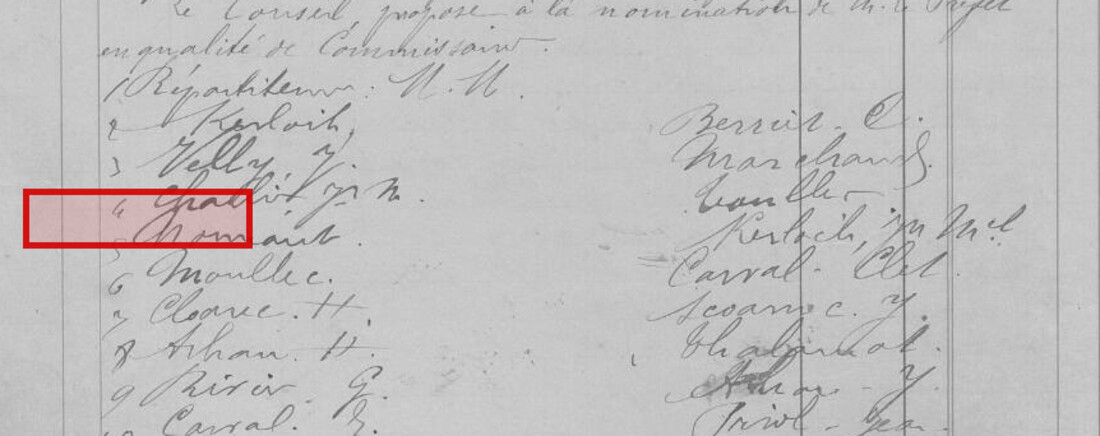 Le Conseil, propose à la nomination de M. le Préfet
en qualité de Commissaire
1 Répartiteur. M. M.
2 Kerloch, Berriet. C.
3 Velly Y. Marchand.
4 J. M.
5 Normant. Kerloch, Jn Mel
6 Moullec. Carval. Clet.
7 Cloarec. H. Scoarnec. Y.
8 Arhan. H. Thalamot.
9 Riou. G. Arhan - Y.
Carval. Y. Trivol - Jean.